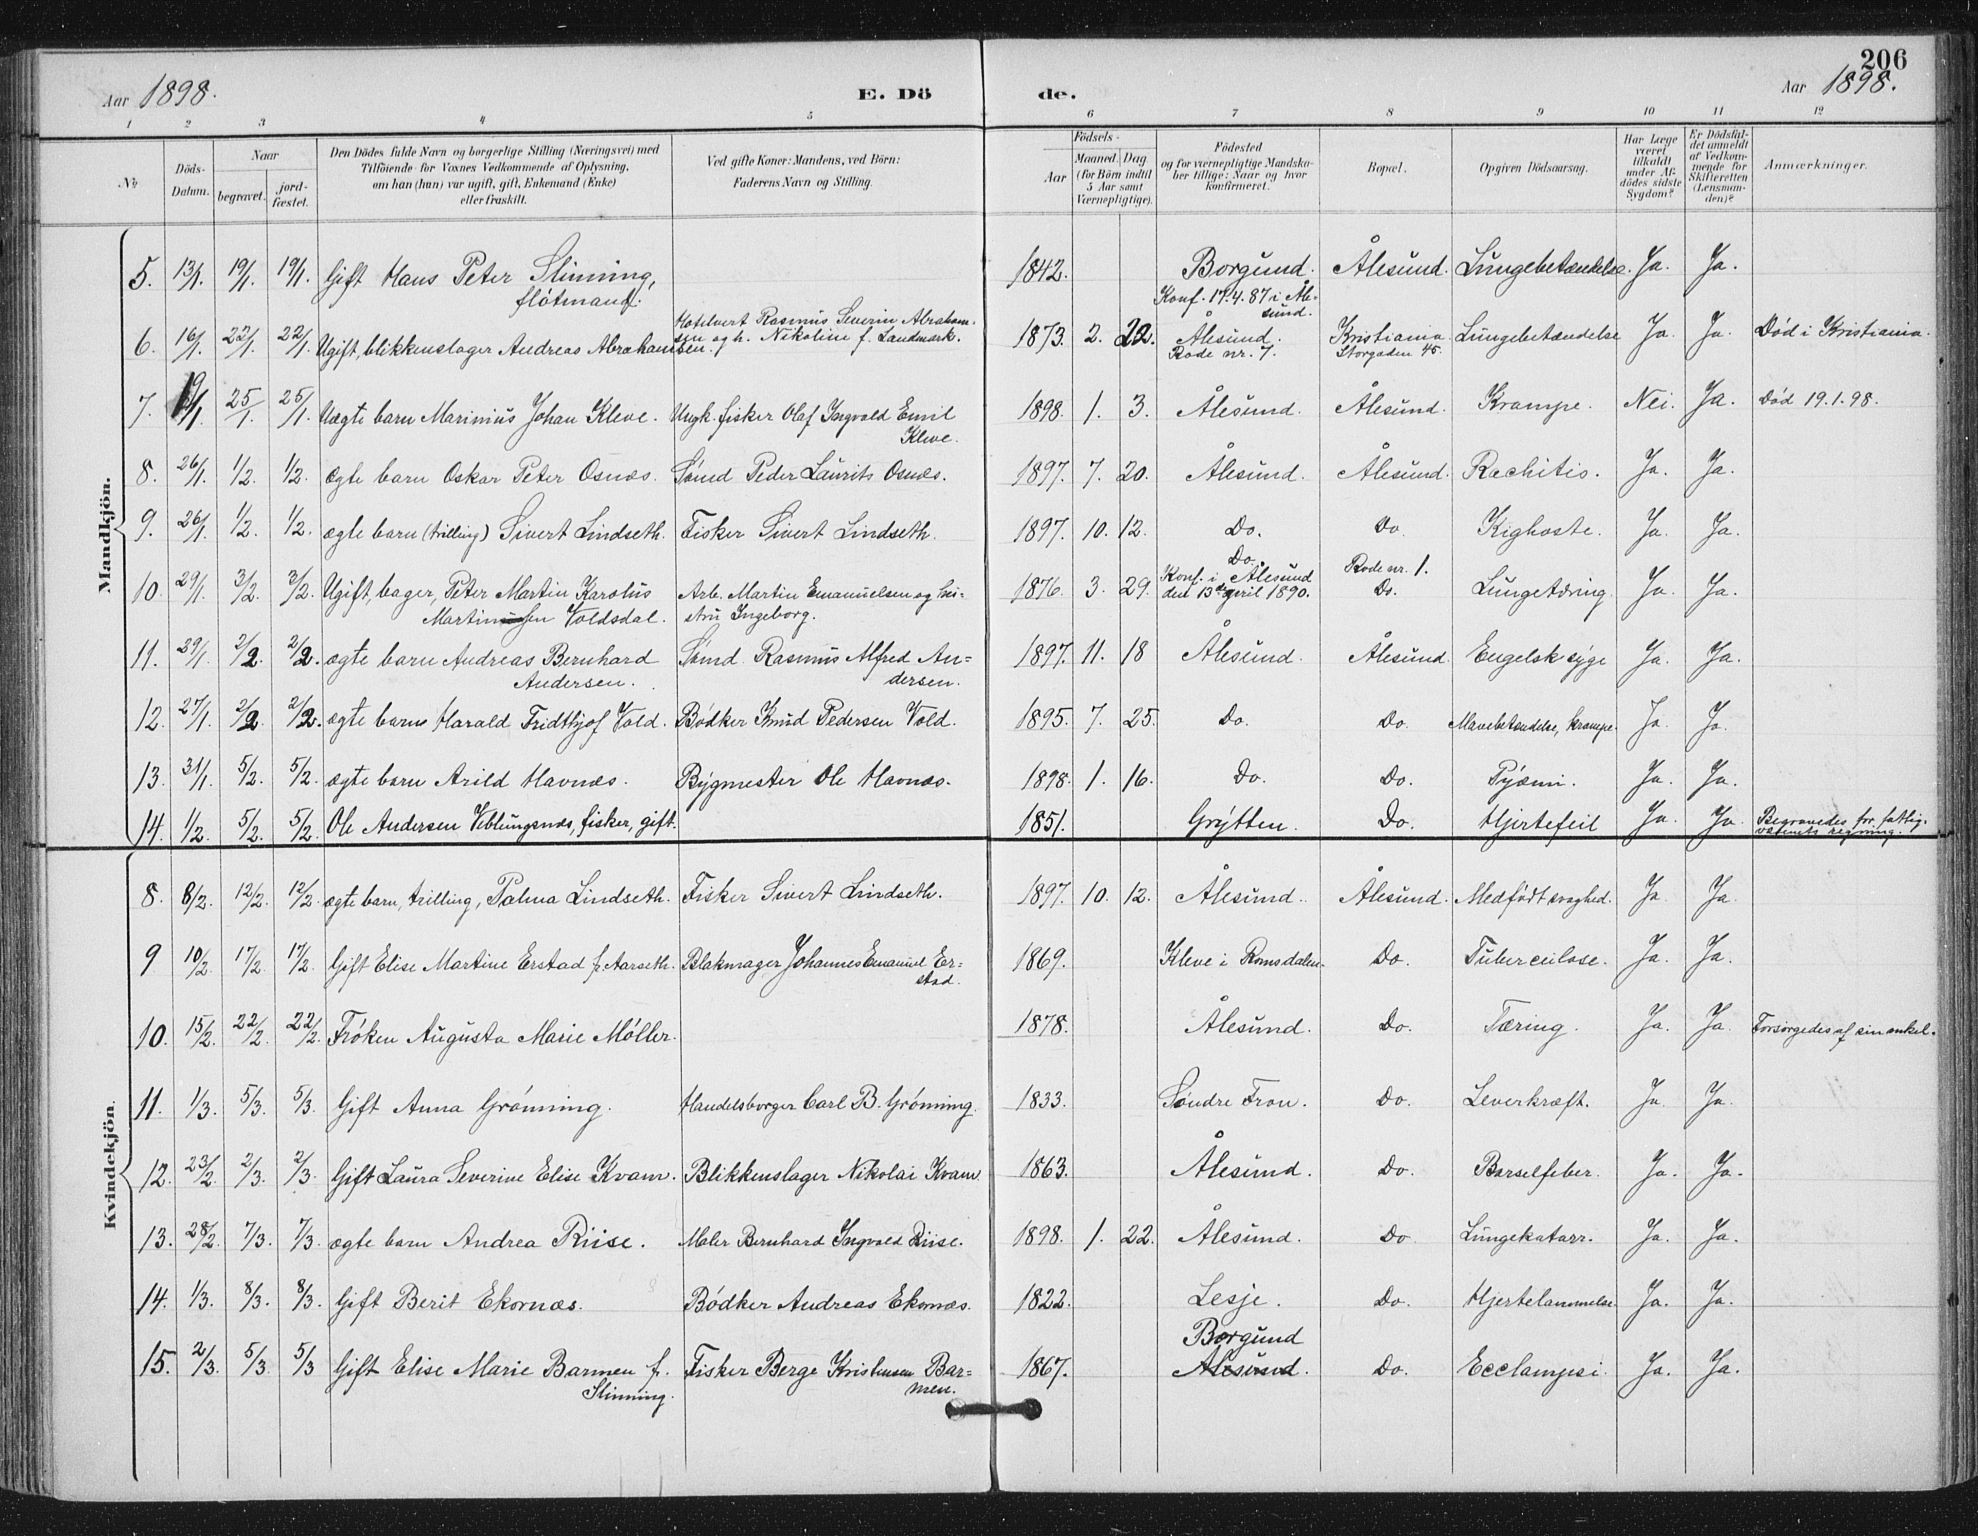 206
Aar 1898.
E. Dö de.
Aar 1898.
1 2 3 4 5 6 7 8 9 10 11 12
№
Döds-Datum.
Naar
begravet.
jord-fæstet.
Den Dödes fulde Navn og borgerlige Stilling (Næringsvei) med
Tilföiende for Voxnes Vedkommende af Oplysning,
om han (hun) var ugift, gift, Enkemand (Enke)
eller fraskilt.
Ved gifte Koner: Mandens, ved Börn:
Faderens Navn og Stilling.
Födsels-
Aar
Maaned. Dag
(for Börn indtil
5 Aar samt
Værnepligtige).
Födested
og for værnepligtige Mandska-
ber tillige: Naar og hvor
konfirmeret.
Bopæl.
Opgiven Dödsaarsag.
Har Læge
været
tilkaldt
under Af-
dödes sidste
Sygdom?
Er Dödsfal-
det anmeldt
af Vedkom-
mende for
Skifteretten
(Lensman-
den)?
Anmærkninger.
Mandkjön.
5. 13/1. 19/1. 19/1. Gift Hans Peter Slinning, fløtmand. 1842. Borgund. Ålesund. Lungebetændelse. Ja. Ja.
6. 16/1. 22/1. 22/1. Ugift, blikkenslager Andreas Abrahamsen. Hotelvert Rasmus Severin Abraham-
sen og h. Nikoline f. Landmark. 1873. 2. 22. Konf. 17.4.87 i Åle-
sund.
Ålesund.
Rode nr. 7. Kristiania
Storgaden 45. Lungebetændelse Ja. Ja. Død i Kristiania.
7. 19/1 25/1. 25/1. Uægte barn Marinius Johan Kleve. Ungk. fisker Olaf Ingvald Emil
Kleve. 1898. 1. 3. Ålesund. Ålesund. Krampe. Nei. Ja. Død 19.1.98.
8. 26/1. 1/2. 1/2. Ægte barn Oskar Peter Osnæs. Sømd Peder Laurits Osnæs. 1897. 7. 20. Ålesund. Ålesund. Rachitis. Ja. Ja.
9. 26/1. 1/2. 1/2. ægte barn (trilling) Sivert Lindseth. Fisker Sivert Lindseth. 1897. 10. 12. Do. Do. Kighoste. Ja. Ja.
10. 29/1. 3/2. 3/2. Ugift, bager, Peter Martin Karolus
Martinussen Voldsdal. Arb. Martin Emanuelsen og hu-
stru Ingeborg. 1876. 3. 29. Do.
Konf. i Ålesund
den 13de april 1890. Rode nr. 1.
Do. Lungetæring. Ja. Ja.
11. 29/1. 2/2. 2/2. ægte barn Andreas Bernhard
Andersen. Sømd. Rasmus Alfred An-
dersen. 1897. 11. 18 Ålesund. Ålesund. Engelsk syge Ja. Ja.
12. 27/1. 2/2. 2/2. ægte barn Harald Fridthjof Vold. Bødker Knud Pedersen Vold. 1895. 7. 25. Do. Do. Mavebetændelse, krampe. Ja. Ja.
13. 31/1. 5/2. 5/2. ægte barn Arild Havnæs. Bygmester Ole Havnæs. 1898. 1. 16. Do. Do. Pyæmi. Ja. Ja.
14. 1/2. 5/2. 5/2. Ole Andersen Veblungsnæs, fisker, gift. 1851. Grytten. Do. Hjertefeil Ja. Ja. Begravedes for fattig-
væsenets regning.
Kvindekjön.
8. 8/2. 12/2. 12/2. ægte barn, trilling, Palma Lindseth. Fisker Sivert Lindseth. 1897. 10. 12. Ålesund. Ålesund. Medfødt svaghed. Ja. Ja.
9 10/2. 17/2. 17/2. Gift Elise Martine Erstad f. Aarseth. Blakmager Johannes Emanuel Er-
stad. 1869. Kleve i Romsdalen. Do. Tuberculose. Ja. Ja.
10. 15/2. 22/2. 22/2. Frøken Augusta Marie Møller. 1878. Ålesund. Do. Tæring. Ja. Ja. Forsørgedes af sin onkel.
11. 1/3. 5/3. 5/3. Gift Anna Grønning. Handelsborger Carl B. Grønning. 1833. Søndre Fron. Do. Leverkræft. Ja. Ja.
12. 23/2. 2/3. 2/3. Gift Laura Severine Elise Kvam. Blikkenslager Nikolai Kvam. 1863. Ålesund. Do. Barselfeber. Ja. Ja.
13. 28/2. 7/3. 7/3. ægte barn Andrea Riise. Maler Bernhard Ingvald Riise. 1898. 1. 22. Ålesund. Do Lungekatarr. Ja. Ja.
14. 1/3. 8/3. 8/3. Gift Berit Ekornæs. Bødker Andreas Ekornæs. 1822. Lesje. Do. Hjertelammelse. Ja. Ja.
15. 2/3. 5/3. 5/3 Gift Elise Marie Barmen f.
Slinning. Fisker Berge Kristensen Bar-
men. 1867. Borgund
Ålesund. Do. Ecclampsi. Ja. Ja.